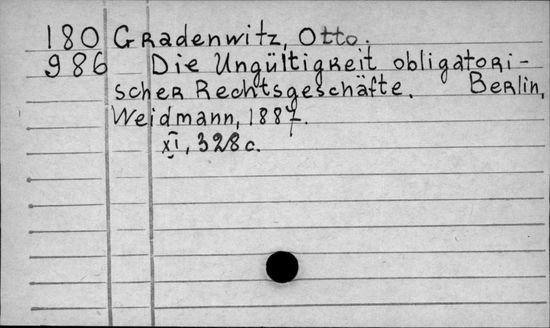 180 Gradenwitz, Otto.
986 Die Ungültigkeit obligatori-
scher Rechtsgeschäfte. Berlin,
Weidmann, 1887.
XI, 328 c.